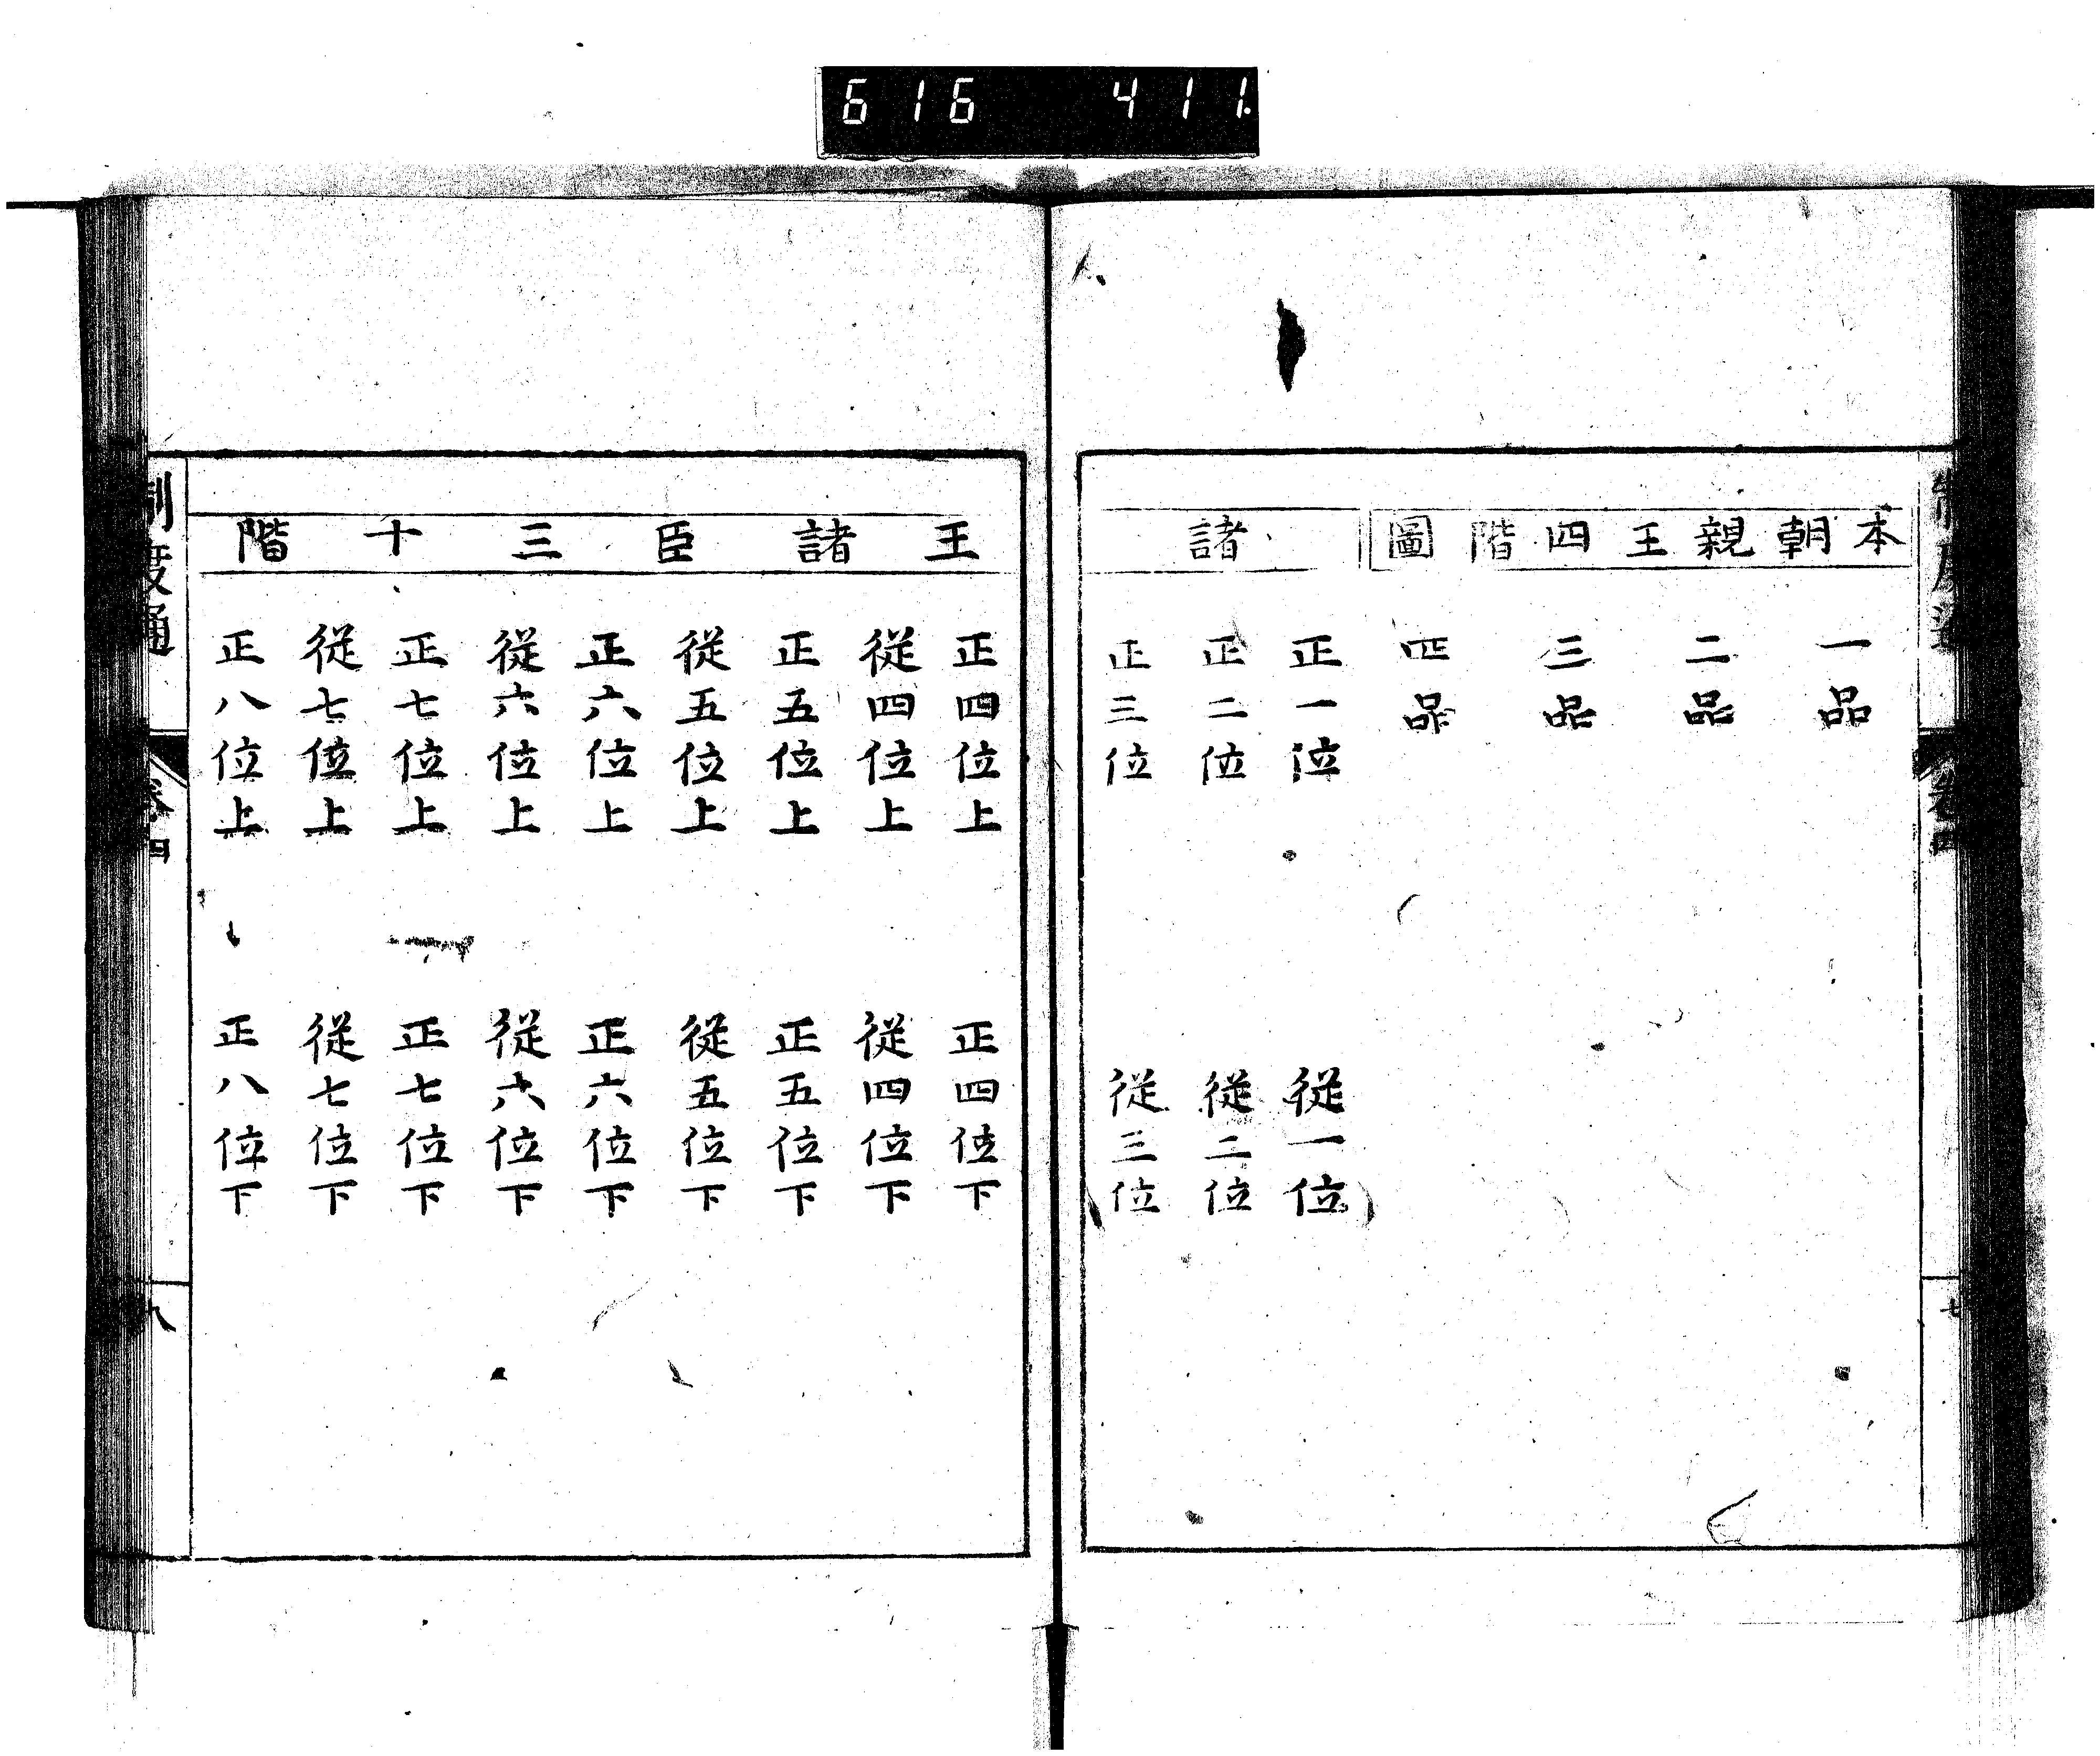 616 411
制度通 卷四 七
本朝親王四階圖
一品
二品
三品
四品
諸
正一位 從一位
正二位 從二位
正三位 從三位
王諸臣三十階
正四位上 正四位下
從四位上 從四位下
正五位上 正五位下
從五位上 從五位下
正六位上 正六位下
從六位上 從六位下
正七位上 正七位下
從七位上 從七位下
正八位上 正八位下
制度通 卷四 八